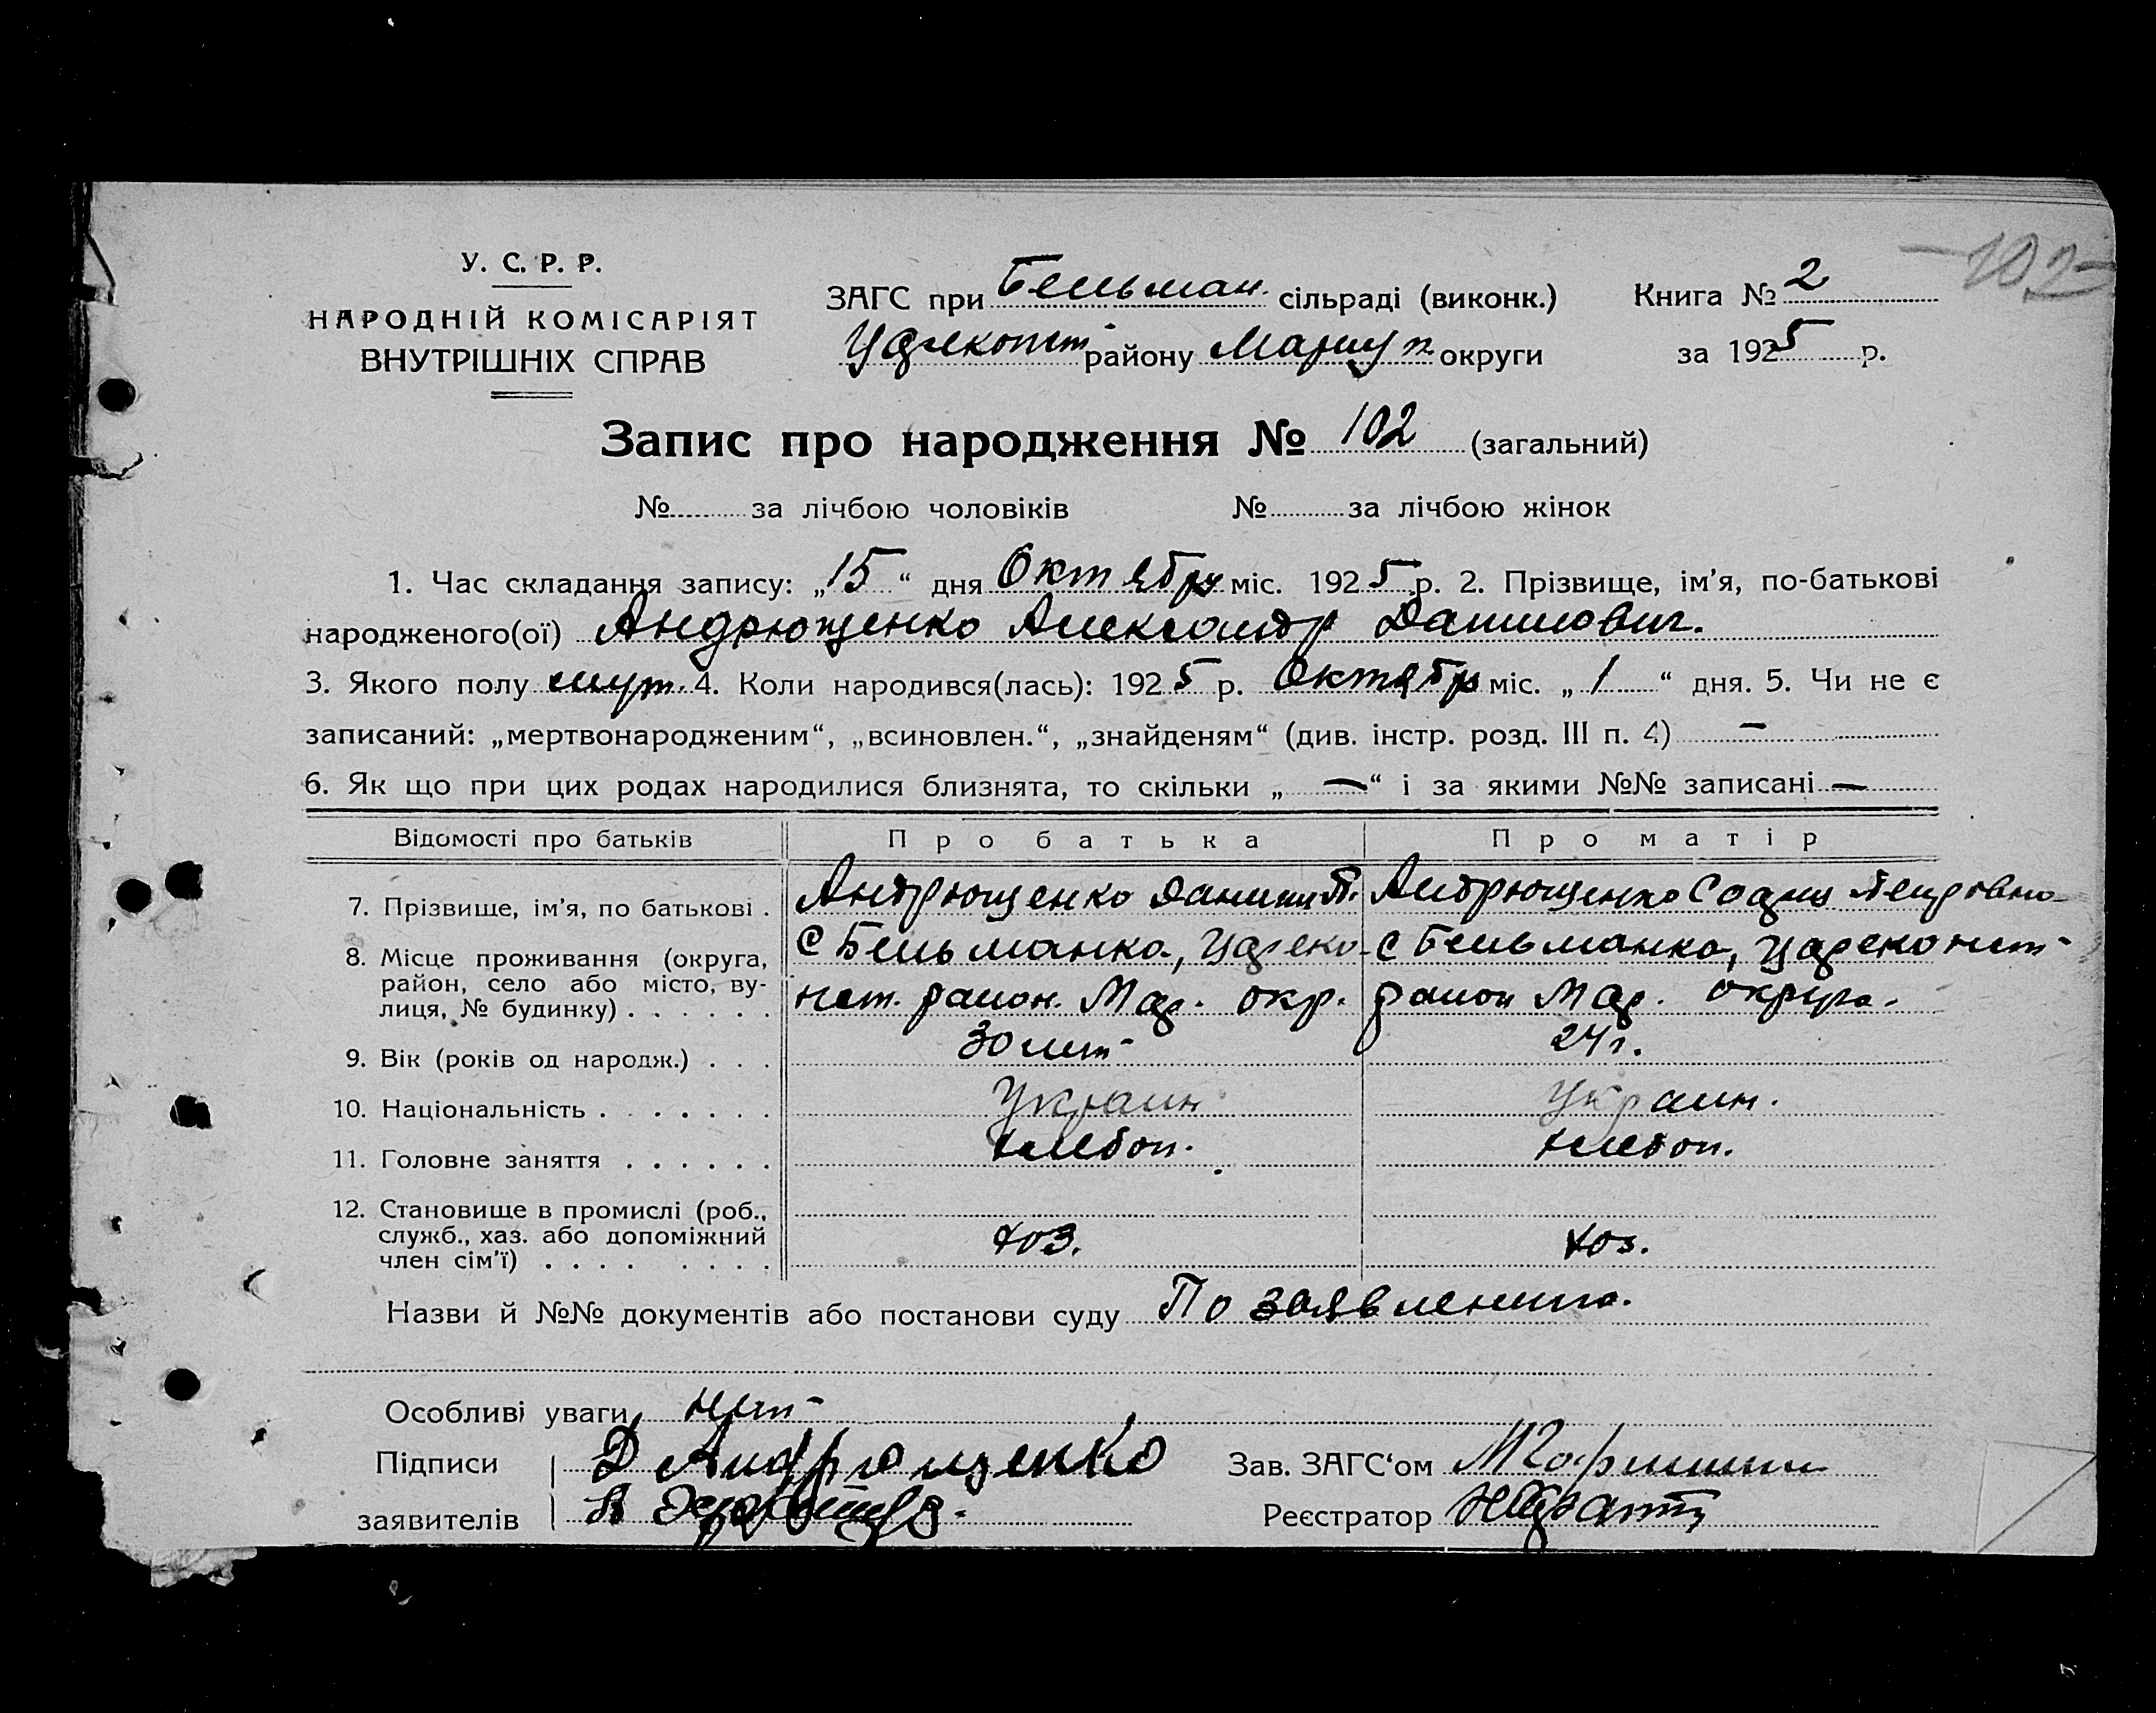 102
У. С. Р. Р.
НАРОДНІЙ КОМІСАРІЯТ
ВНУТРІШНІХ СПРАВ
ЗАГС при Бельман. сільраді (виконк.) Книга № 2
району Мариуп. округи за 1925 р.
Запис про народження № 102 (загальний)
№ за лічбою чоловіків № за лічбою жінок
1. Час складання запису: „15“ дня Октября міс. 1925 р. 2. Прізвище, ім’я, по-батькові
народженого(ої) Андрющенко Александр Данилович.
3. Якого полу муж. 4. Коли народився(лась): 1925 р. Октября міс. „1“ дня. 5. Чи не є
записаний: „мертвонародженим“, „всиновлен.“, „знайденям“ (див. інстр. розд. III п. 4) —
6. Як що при цих родах народилися близнята, то скільки „—“ і за якими №№ записані —
Відомості про батьків Про батька Про матір
7. Прізвище, ім’я, по батькові . Андрющенко Данил П. Андрющенко Петровна
8. Місце проживання (округа, район, село або місто, вулиця, № будинку) . . . . . .
С Бельманка, Цареко-
нст. район. Мар. окр.
С Бельманка, Цареконст
район Мар. округа.
9. Вік (років од народж.) . . . 30 лет 24 г.
10. Національність . . . . . . . Украин Украин.
11. Головне заняття . . . . . . хлебоп. хлебоп.
12. Становище в промислі (роб., служб., хаз. або допоміжний член сім’ї) . . . . . . . . хоз. хоз.
Назви й №№ документів або постанови суду По заявлению.
Особливі уваги нет
Підписи Д Андрющенко Зав. ЗАГС‘ом
заявителів Реєстратор